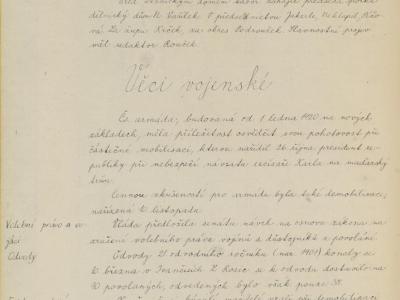 dělnický dům N. Vaňek. O předsednictvu Jokerle, Neklapil, Růžo-
vá. Za župu Krček, za obec Podroužek. Slavnostní projev
měl redaktor Koníček.
Věci vojenské
Čs. armáda, budovaná od 1. ledna 1920 na nových
základech, měla příležitost osvědčit svou pohotovost při
částečné mobilisaci, kterou nařídil 26. října president re-
publiky při nebezpečí návratu císaře Karla na maďarský
trůn.
Cennou zkušeností pro armádu byla také demobilisace,
nařízená 10. listopadu.
Volební právo a vo-
jáci
Vláda předložila senátu návrh na osnovu zákona na
zrušení volebního práva vojínů a důstojníků z povolání.
Odvody
Odvody 21 odvodního ročníku (nar. 1901) konaly se
10. března v Ivančicích. Z Rosic se k odvodu dostavilo na
10 povolaných, odvedených bylo však pouze 38.